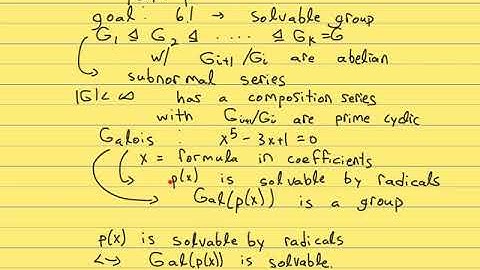 goal: 6.1 → solvable group
G₁ ⊴ G₂ ⊴ ..... ⊴ Gₖ = G
w/ Gᵢ₊₁/Gᵢ are abelian
subnormal series
|G| < ∞ has a composition series
with Gᵢ₊₁/Gᵢ are prime cyclic
Galois : x⁵ - 3x + 1 = 0
x = formula in coefficients
p(x) is solvable by radicals
Gal(p(x)) is a group
p(x) is solvable by radicals
<-> Gal(p(x)) is solvable.